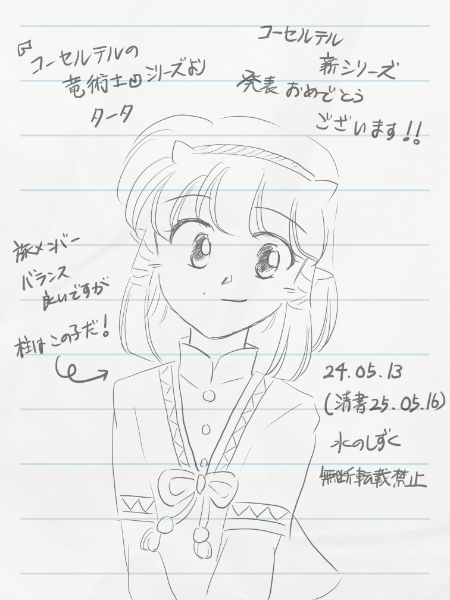 コーセルテルの
竜術士シリーズより
タータ
コーセルテル
新シリーズ
発表おめでとう
ございます!!
旅メンバー
バランス
良いですが
柱はこの子だ!
24.05.13
(清書25.05.16)
水のしずく
無断転載禁止